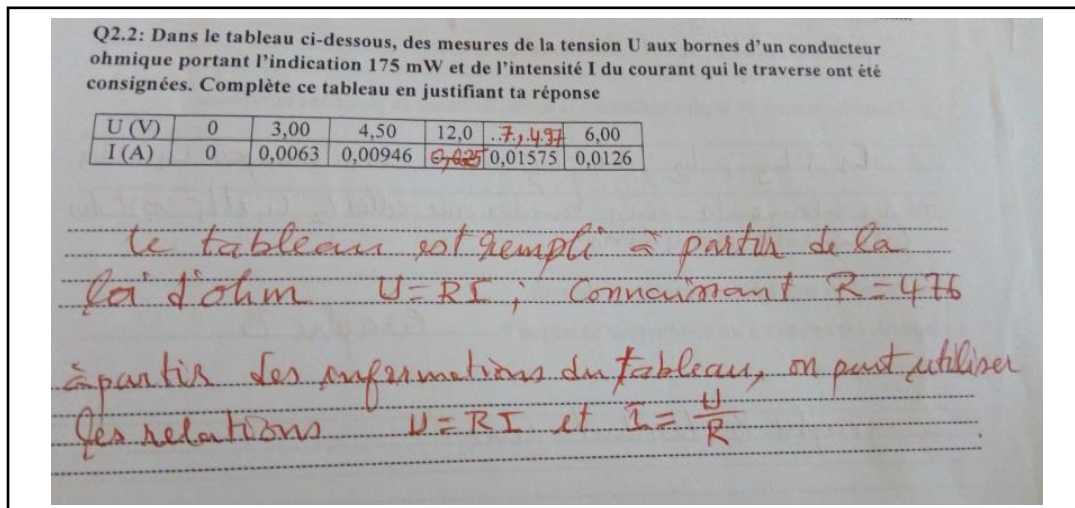 Q2.2: Dans le tableau ci-dessous, des mesures de la tension U aux bornes d'un conducteur
ohmique portant l'indication 175 mW et de l'intensité I du courant qui le traverse ont été
consignées. Complète ce tableau en justifiant ta réponse
U (V) 0 3,00 4,50 12,0 ..7,497 6,00
I (A) 0 0,0063 0,00946 0,025 0,01575 0,0126
Le tableau est rempli à partir de la
loi d'ohm U=RI ; Connaissant R=476
à partir des informations du tableau, on peut utiliser
les relations U=RI et I=U/R